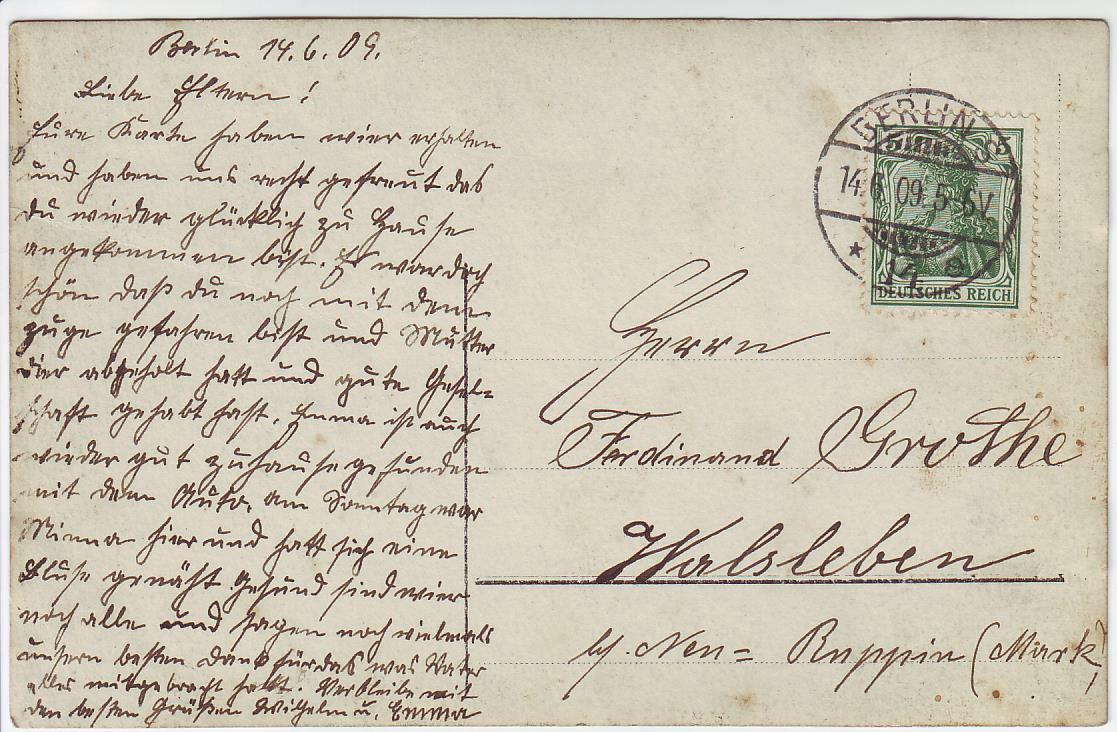 Berlin 14.6.09.
Liebe Eltern!
Eure Karte haben wier erhalten
und haben uns recht gefreut das
du wieder glücklich zu Hause
angekommen bist. Es war doch
schön daß du noch mit dem
zuge gefahren bist und Mutter
dier abgeholt hatt und gute Gesel=
schaft gehabt hast. Emma ist auch
wieder gut zuhause gefunden
mit dem Auto, am Sonntag war
Minna hier und hatt sich eine
Bluse genäht Gesund sind wier
noch alle und sagen noch vielmals
unsern besten Dank für das was Vater
alles mitgebracht hatt. Verbleibe mit
den besten Grüßen Wilhelm u. Emma
BERLIN
14.6.09.5-6V.
5 5
DEUTSCHES REICH
Herrn
Ferdinand Grothe
Walsleben
b/ Neu= Ruppin (Mark)